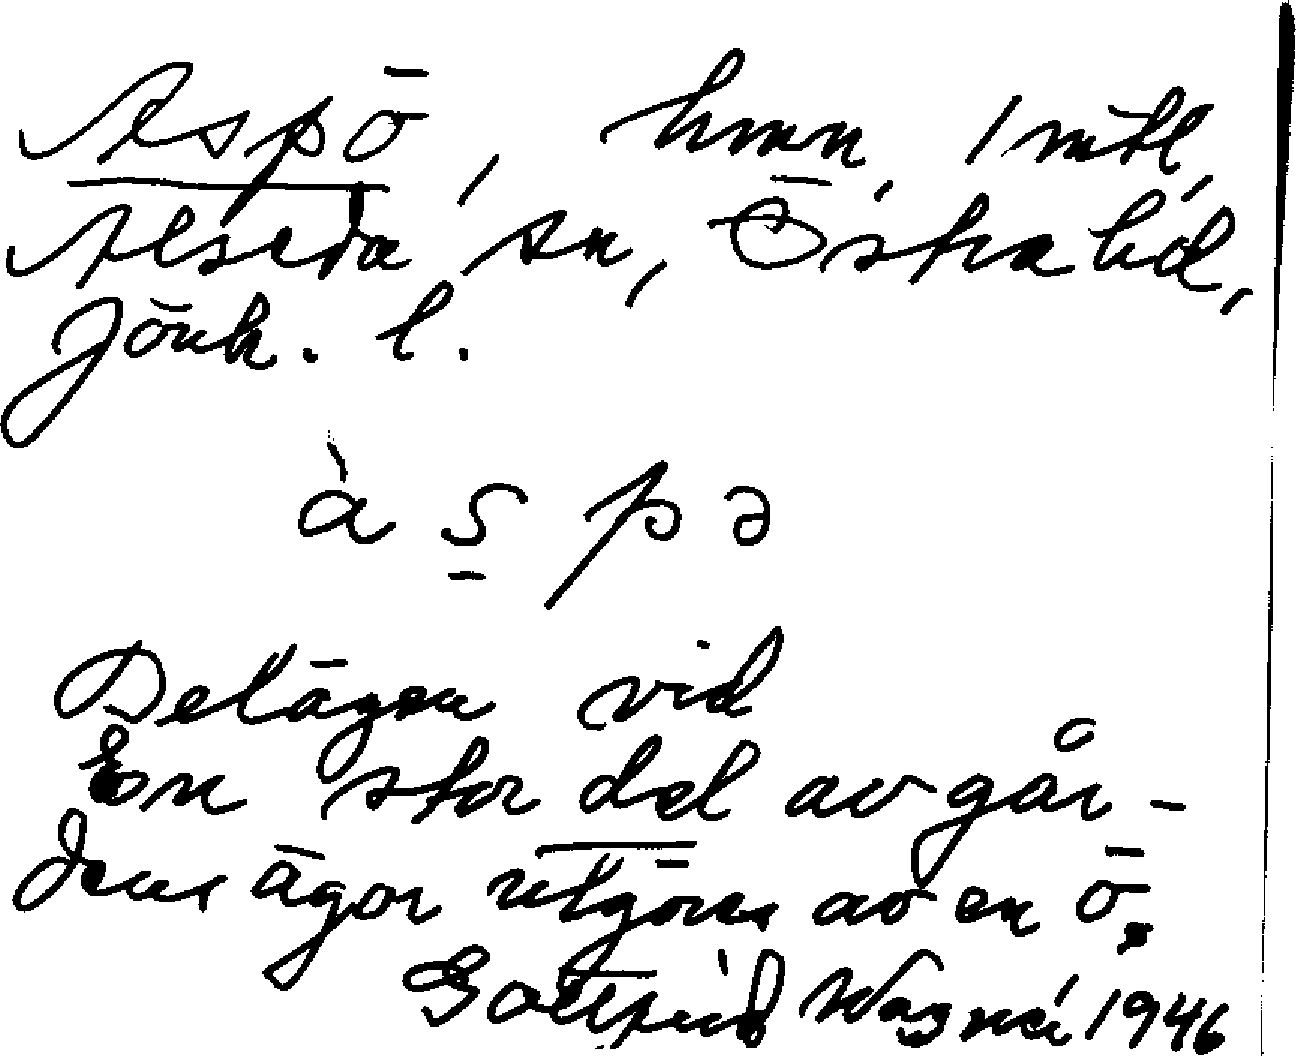 Aspö, hmn, 1 mtl,
Alseda sn, Östra hd,
Jönk. l.
àspə
Belägen vid
En stor del av går-
dens ägor utgöres av en ö.
Gottfrid Wagnér 1946